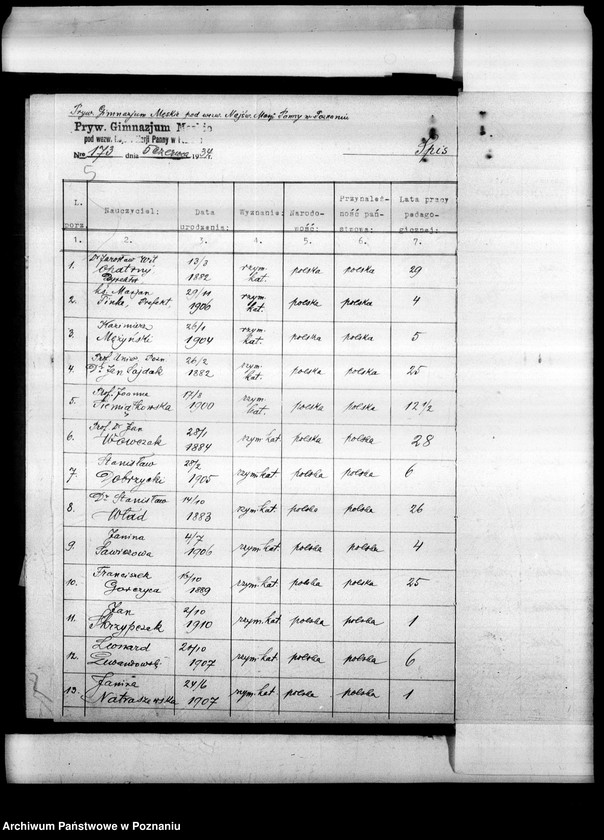 Pryw. Gimnazjum Męskie pod wezw. Najśw. Marji Panny w Poznaniu
Pryw. Gimnazjum
pod wezw. Marji Panny w
Nr. 173 dnia 5 czerwca 1934 r.
Spis
L. porz. Nauczyciel: Data urodzenia: Wyznanie: Narodowość: Przynależność państwowa: Lata pracy pedagogicznej:
1. 2. 3. 4. 5. 6. 7.
1. Dr Jarosław Wit Opatrny Dyrektor 13/3 1882 rzym. kat. polska polska 29
2. ks. Marjan Finke, Prefekt. 29/11 1906 rzym. kat. polska polska 4
3. Kazimierz Mężyński 26/1 1904 rzym. kat. polska polska 5
4. Prof. Uniw. Pozn. Dr Jan Sajdak 26/2 1882 rzym. kat. polska polska 25
5. Prof. Joanna Siemiątkowska 17/8 1900 rzym. kat. polska polska 12 1/2
6. Prof. Dr Jan Wówczak 28/1 1884 rzym kat. polska polska 28
7. Stanisław Dobrzycki 28/2 1905 rzym kat. polska polska 6
8. Dr Stanisław Wład 14/10 1883 rzym. kat. polska polska 26
9. Janina Sawiczowa 4/7 1906 rzym. kat. polska polska 4
10. Franciszek Gorczyca 15/10 1889 rzym. kat. polska polska 25
11. Jan Skrzypczak 2/10 1910 rzym. kat. polska polska 1
12. Leonard Lewandowski 20/10 1907 rzym. kat polska polska 6
13. Janina Nataszewska 24/6 1907 rzym. kat polska polska 1
Archiwum Państwowe w Poznaniu